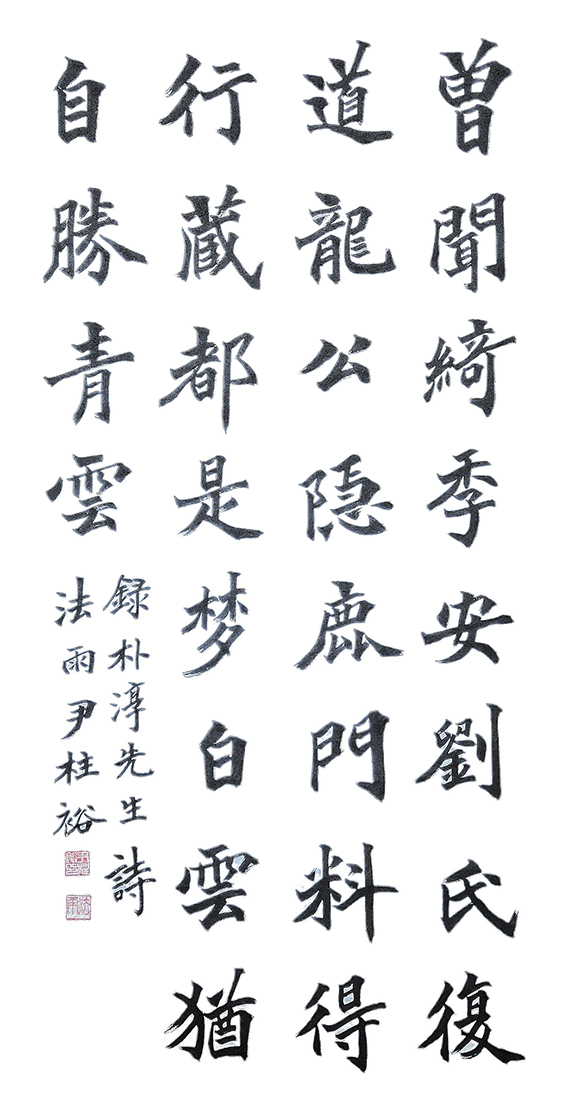 曽聞綺季安劉氏復
道龍公隠鹿門料得
行蔵都是梦白雲猶
自勝青雲
録朴淳先生詩
法雨尹桂裕